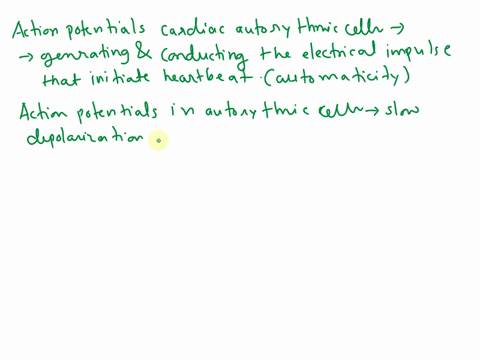 Action potentials cardiac autorythmic cells →
→ genrating & conducting the electrical impulse
that initiate heartbeat. (automaticity)
Action potentials in autorythmic cells → slow
depolarization